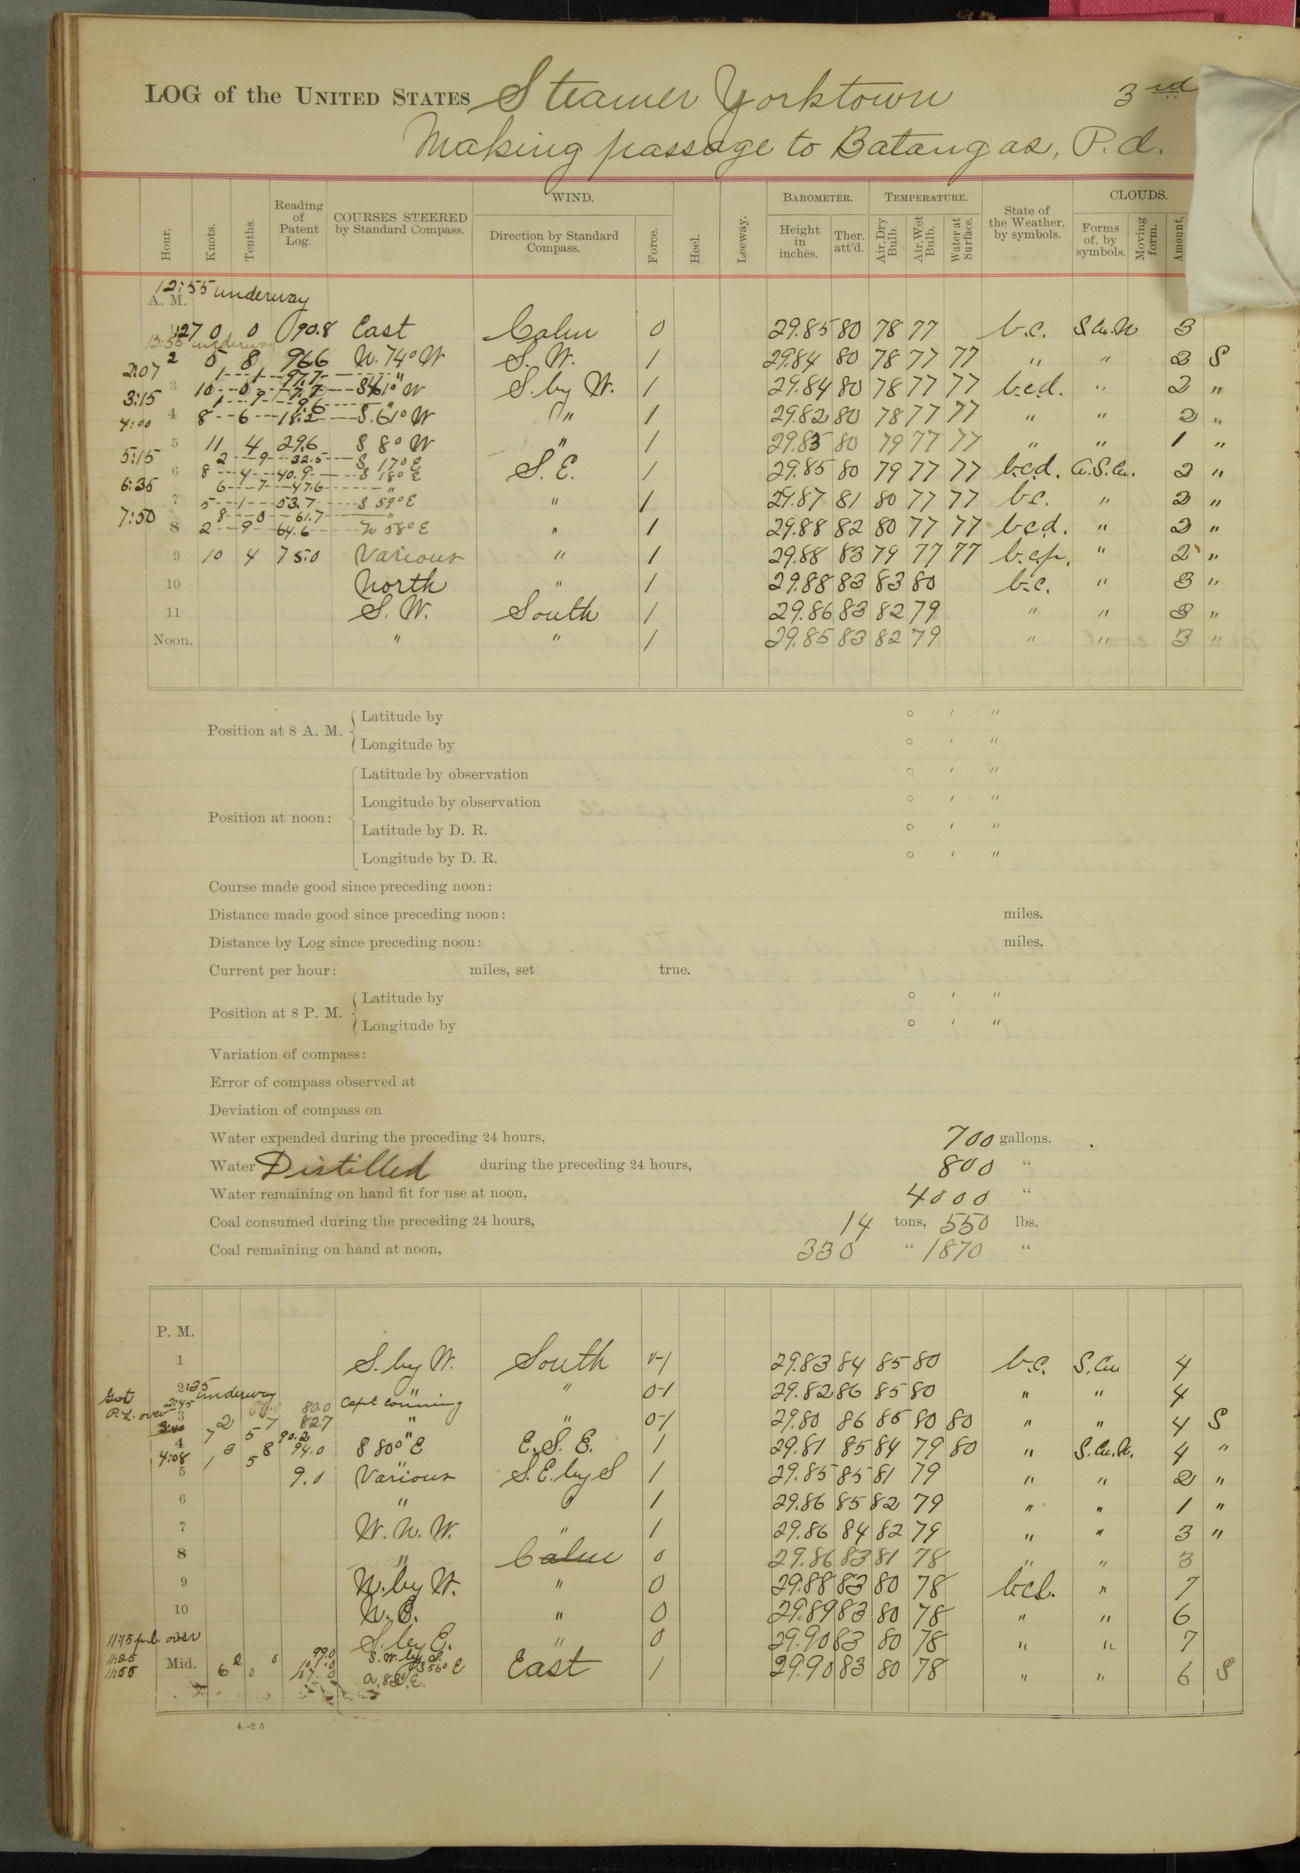 LOG of the UNITED STATES Steamer Yorktown 3rd
Making passage to Batangas, P. I.
WIND. BAROMETER. TEMPERATURE. CLOUDS.
Hour. Knots. Tenths. Reading of Patent Log. COURSES STEERED by Standard Compass. Direction by Standard Compass. Force. Heel. Leeway. Height in inches. Ther. att'd. Air, Dry Bulb. Air, Wet Bulb. Water at Surface. State of the Weather, by symbols. Forms of, by symbols. Moving form. Amount,
12:55 underway
A. M.
1:27 0 0 90.8 East Calm 0 29.85 80 78 77 b.c. S.Cu.N 3
2 5 8 96.6 N. 74° W S. W. 1 29.84 80 78 77 77 " " 2 S
2:07 1 1 97.7 "
3 10 0 7.7 S 61° W S. by W. 1 29.84 80 78 77 77 b.c.d. " 2 "
3:15 1 9 9.6 "
4 8 6 18.2 S. 61° W " 1 29.82 80 78 77 77 " " 2 "
4:00
5 11 4 29.6 S 8° W " 1 29.83 80 79 77 77 " " 1 "
5:15 2 9 32.5 S 17° E
6 8 4 40.9 S 18° E S. E. 1 29.85 80 79 77 77 b.c.d. C.S.Cu. 2 "
6:35 6 7 47.6 "
7 5 1 53.7 S 59° E " 1 29.87 81 80 77 77 b.c. " 2 "
7:50 8 0 61.7 "
8 2 9 64.6 N 58° E " 1 29.88 82 80 77 77 b.c.d. " 2 "
9 10 4 75.0 Various " 1 29.88 83 79 77 77 b.c.p. " 2 "
10 North " 1 29.88 83 83 80 b.c. " 3 "
11 S. W. South 1 29.86 83 82 79 " " 3 "
Noon. " " 1 29.85 83 82 79 " " 3 "
Position at 8 A. M. Latitude by ° ′ ″
Longitude by ° ′ ″
Position at noon: Latitude by observation ° ′ ″
Longitude by observation ° ′ ″
Latitude by D. R. ° ′ ″
Longitude by D. R. ° ′ ″
Course made good since preceding noon:
Distance made good since preceding noon: miles.
Distance by Log since preceding noon: miles.
Current per hour: miles, set true.
Position at 8 P. M. Latitude by ° ′ ″
Longitude by ° ′ ″
Variation of compass:
Error of compass observed at
Deviation of compass on
Water expended during the preceding 24 hours, 700 gallons.
Water Distilled during the preceding 24 hours, 800 "
Water remaining on hand fit for use at noon, 4000 "
Coal consumed during the preceding 24 hours, 14 tons, 550 lbs.
Coal remaining on hand at noon, 330 " 1870 "
P. M.
1 S. by W. South 0-1 29.83 84 85 80 b.c. S.Cu 4
2 " " 0-1 29.82 86 85 80 " " 4
2:35 underway
Got P.L. over 2:45 80.0 Capt conning
3 2 7 82.7 " " 0-1 29.80 86 85 80 80 " " 4 S
7 5 90.2 "
4 3 8 94.0 S 80° E E. S. E. 1 29.81 85 84 79 80 " S.Cu.N. 4 "
4:08 1 5 "
5 9.0 Various S. E. by S 1 29.85 85 81 79 " " 2 "
6 " " 1 29.86 85 82 79 " " 1 "
7 W. N. W. " 1 29.86 84 82 79 " " 3 "
8 " Calm 0 29.86 83 81 78 " " 3
9 N. by W. " 0 29.88 83 80 78 b.c.l. " 7
10 N. E. " 0 29.89 83 80 78 " " 6
S. by E. " 0 29.90 83 80 78 " " 7
Mid. East 1 29.90 83 80 78 " " 6 S
4-25